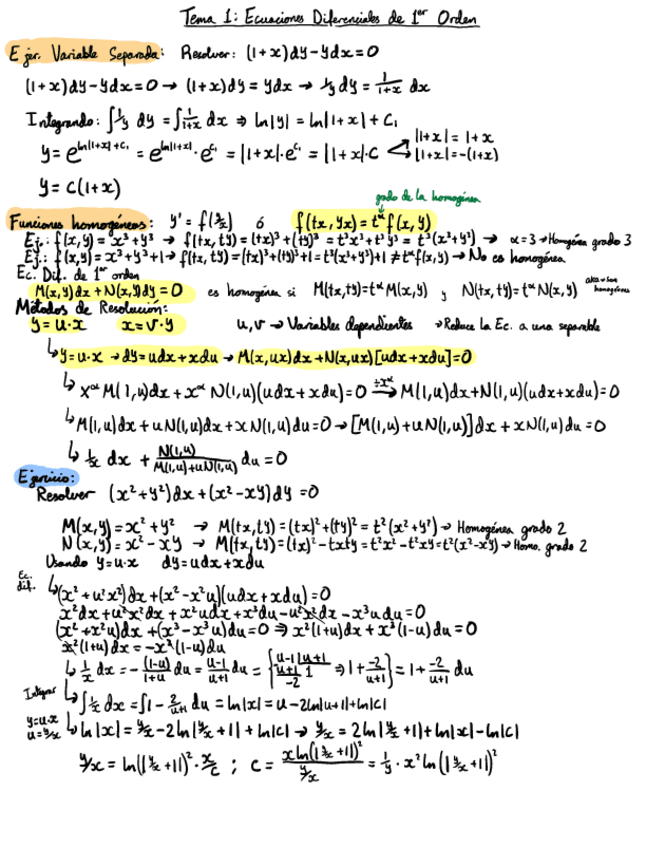 Tema 1: Ecuaciones Diferenciales de 1er Orden
Ejer. Variable Separada: Resolver: (1+x)dy-ydx=0
(1+x)dy-ydx=0 → (1+x)dy=ydx → 1/y dy = 1/(1+x) dx
Integrando: ∫1/y dy = ∫1/(1+x) dx ⇒ ln|y| = ln|1+x| + C₁
y = e^(ln|1+x|+C₁) = e^(ln|1+x|)·e^(C₁) = |1+x|·e^(C₁) = |1+x|·C
|1+x| = 1+x
|1+x| = -(1+x)
y = c(1+x)
grado de la homogénea
Funciones homogéneas: y' = f(y/x) ó f(tx, yx) = t^α f(x,y)
Ej.: f(x,y) = x³+y³ → f(tx,ty) = (tx)³+(ty)³ = t³x³+t³y³ = t³(x³+y³) → α=3 → Homogénea grado 3
Ej.: f(x,y) = x³+y³+1 → f(tx,ty) = (tx)³+(ty)³+1 = t³(x³+y³)+1 ≠ t^α f(x,y) → No es homogénea
Ec. Dif. de 1er orden
M(x,y)dx+N(x,y)dy=0 es homogénea si M(tx,ty)=t^α M(x,y) y N(tx,ty)=t^α N(x,y)
homogéneas
Métodos de Resolución:
y=u·x x=v·y u,v → Variables dependientes → Reduce la Ec. a una separable
↳ y=u·x → dy=udx+xdu → M(x,ux)dx+N(x,ux)[udx+xdu]=0
↳ x^α M(1,u)dx + x^α N(1,u)(udx+xdu)=0 →(÷x^α) M(1,u)dx+N(1,u)(udx+xdu)=0
↳ M(1,u)dx+uN(1,u)dx+xN(1,u)du=0 → [M(1,u)+uN(1,u)]dx+xN(1,u)du=0
↳ 1/x dx + N(1,u)/(M(1,u)+uN(1,u)) du=0
Ejercicio:
Resolver (x²+y²)dx+(x²-xy)dy=0
M(x,y)=x²+y² → M(tx,ty)=(tx)²+(ty)²=t²(x²+y²) → Homogénea grado 2
N(x,y)=x²-xy → M(tx,ty)=(tx)²-txty=t²x²-t²xy=t²(x²-xy) → Homo. grado 2
Usando y=u·x dy=udx+xdu
Ec. dif. ↳ (x²+u²x²)dx+(x²-x²u)(udx+xdu)=0
x²dx+u²x²dx+x²udx+x³du-u²x²dx-x³udu=0
(x²+x²u)dx+(x³-x³u)du=0 ⇒ x²(1+u)dx+x³(1-u)du=0
x²(1+u)dx=-x³(1-u)du
↳ 1/x dx = -(1-u)/(1+u) du = (u-1)/(u+1) du = {u-1 | u+1, u+1 1, -2 ⇒ 1+ -2/(u+1)} = 1+ -2/(u+1) du
Integrar ↳ ∫1/x dx = ∫1- 2/(u+1) du = ln|x| = u-2ln|u+1|+ln|c|
y=u·x
u=y/x ↳ ln|x| = y/x -2ln|y/x+1|+ln|c| → y/x = 2ln|y/x+1|+ln|x|-ln|c|
y/x = ln(|y/x+1|)²·x/c ; c = xln(|y/x+1|)²/(y/x) = 1/y·x²ln(|y/x+1|)²